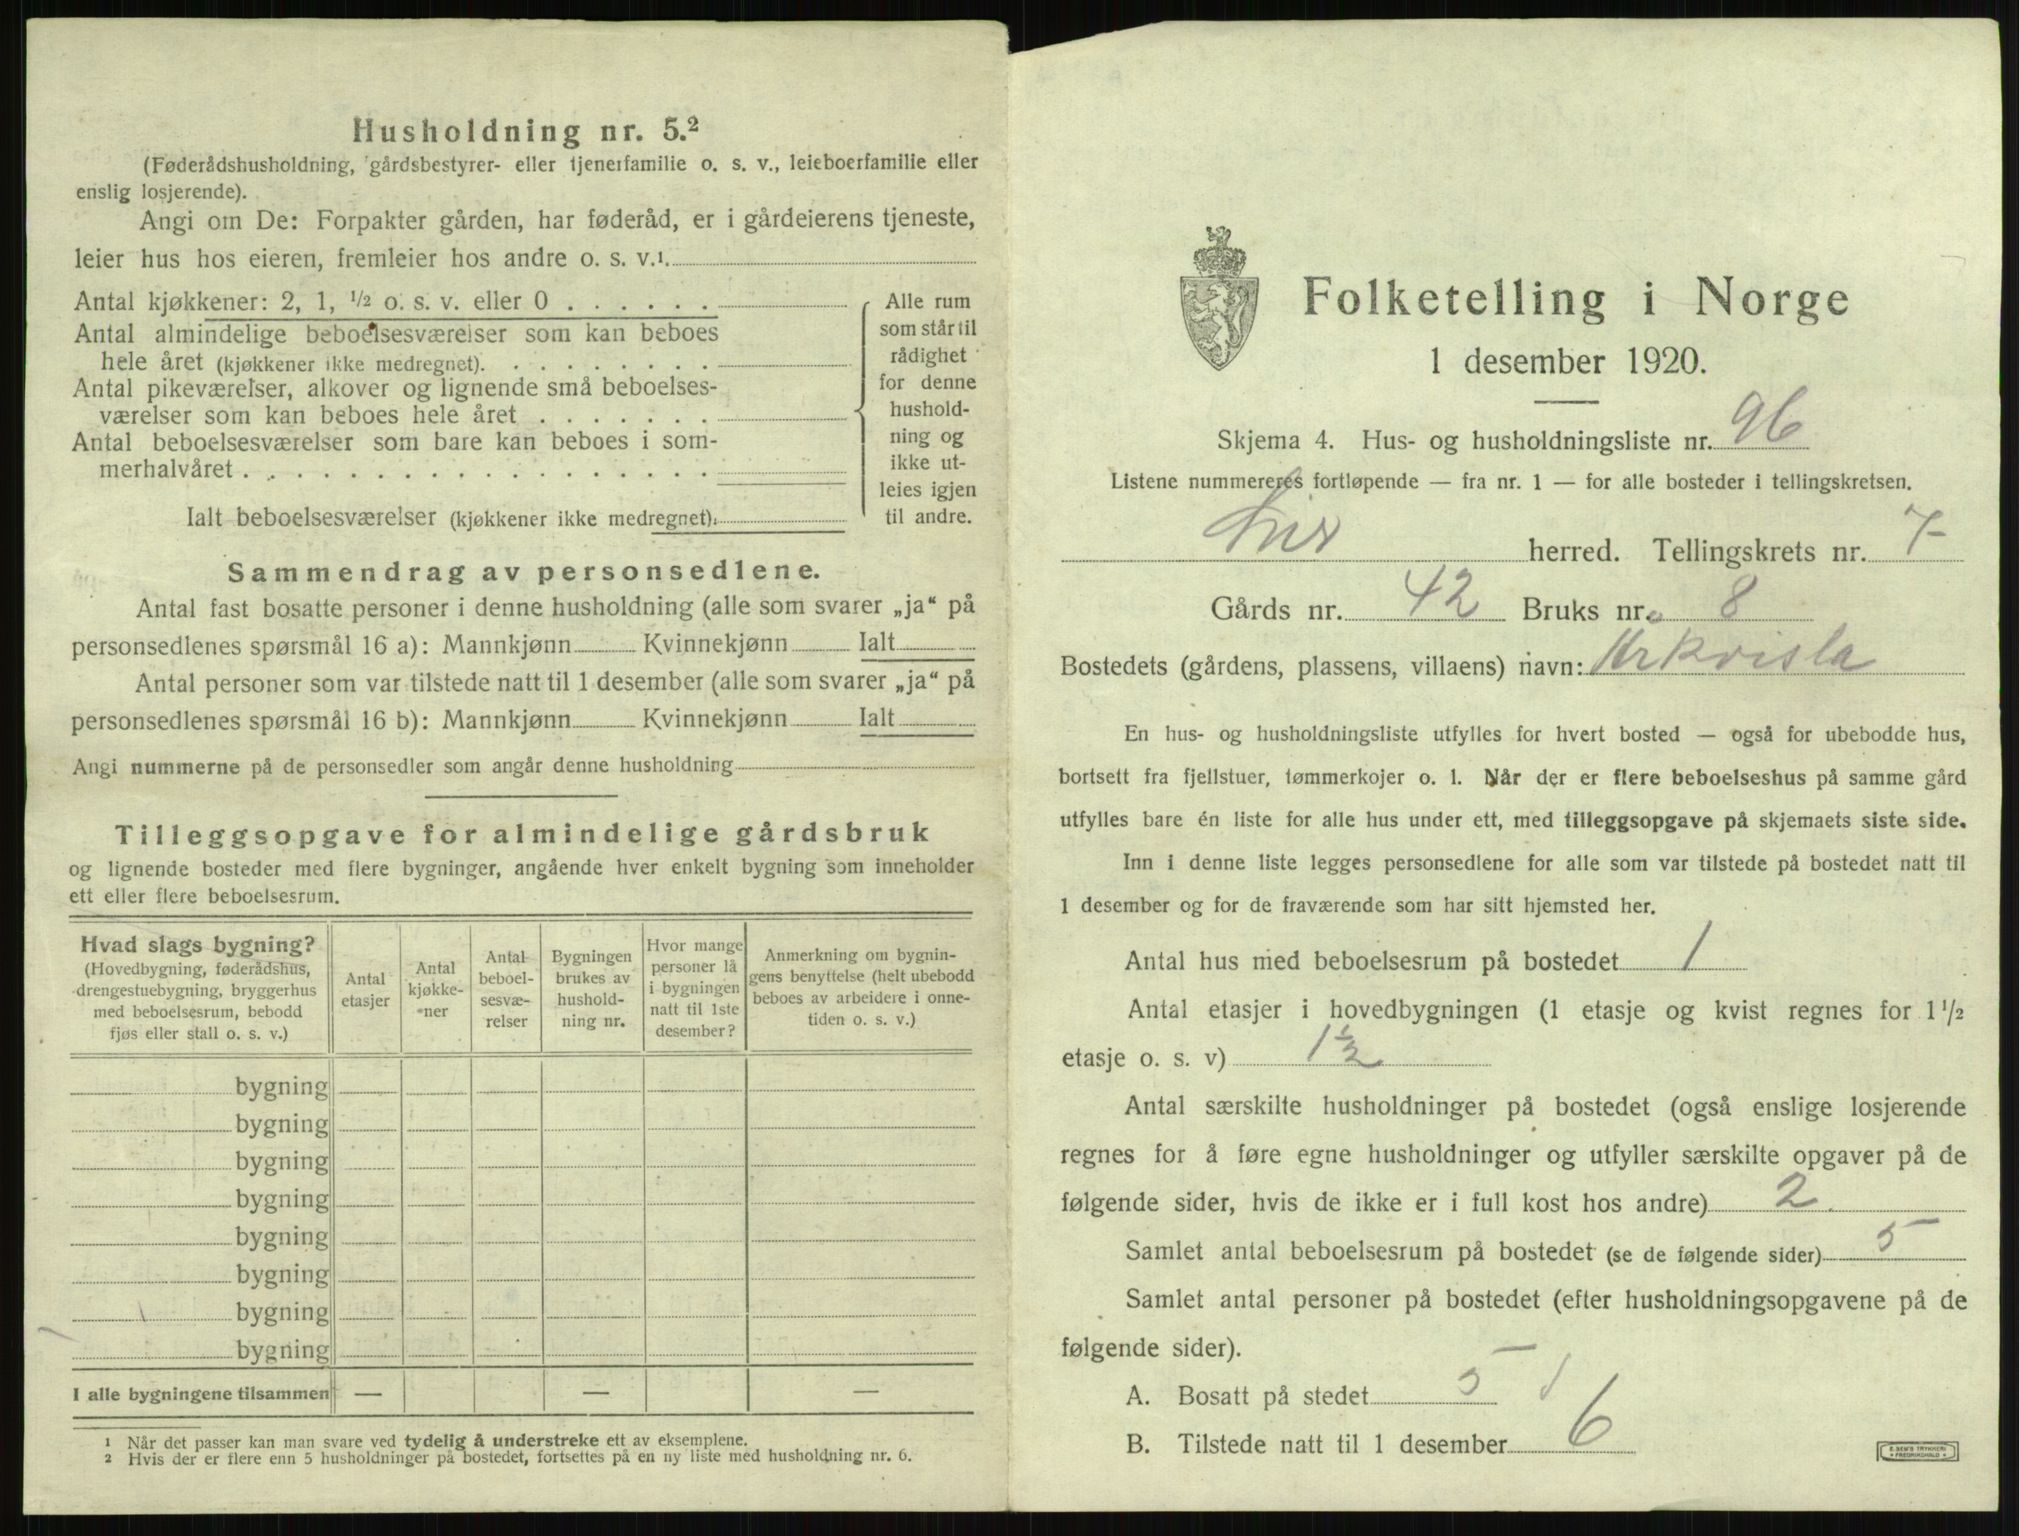 Husholdning nr. 5.²
(Føderådshusholdning, gårdsbestyrer- eller tjenerfamilie o. s. v., leieboerfamilie eller
enslig losjerende).
Angi om De: Forpakter gården, har føderåd, er i gårdeierens tjeneste,
leier hus hos eieren, fremleier hos andre o. s. v.¹.
Antal kjøkkener: 2, 1, ½ o. s. v. eller 0 . . . . . .
Antal almindelige beboelsesværelser som kan beboes
hele året (kjøkkener ikke medregnet). . . . . . . . .
Antal pikeværelser, alkover og lignende små beboelses-
værelser som kan beboes hele året . . . . . . .
Antal beboelsesværelser som bare kan beboes i som-
merhalvåret . . . . . . . . . . . . . . . . . .
Alle rum
som står til
rådighet
for denne
hushold-
ning og
ikke ut-
leies igjen
til andre.
Ialt beboelsesværelser (kjøkkener ikke medregnet).
Sammendrag av personsedlene.
Antal fast bosatte personer i denne husholdning (alle som svarer „ja“ på
personsedlenes spørsmål 16 a): Mannkjønn Kvinnekjønn Ialt
Antal personer som var tilstede natt til 1 desember (alle som svarer „ja“ på
personsedlenes spørsmål 16 b): Mannkjønn Kvinnekjønn Ialt
Angi nummerne på de personsedler som angår denne husholdning
Tilleggsopgave for almindelige gårdsbruk
og lignende bosteder med flere bygninger, angående hver enkelt bygning som inneholder
ett eller flere beboelsesrum.
Hvad slags bygning?
(Hovedbygning, føderådshus,
drengestuebygning, bryggerhus
med beboelsesrum, bebodd
fjøs eller stall o. s. v.)
Antal
etasjer
Antal
kjøkke-
ner
Antal
beboel-
sesvæ-
relser
Bygningen
brukes av
hushold-
ning nr.
Hvor mange
personer lå
i bygningen
natt til 1ste
desember?
Anmerkning om bygnin-
gens benyttelse (helt ubebodd
beboes av arbeidere i onne-
tiden o. s. v.)
bygning
bygning
bygning
bygning
bygning
bygning
bygning
bygning
I alle bygningene tilsammen — — —
1 Når det passer kan man svare ved tydelig å understreke ett av eksemplene.
2 Hvis der er flere enn 5 husholdninger på bostedet, fortsettes på en ny liste med husholdning nr. 6.
Folketelling i Norge
1 desember 1920.
Skjema 4. Hus- og husholdningsliste nr. 96
Listene nummereres fortløpende — fra nr. 1 — for alle bosteder i tellingskretsen.
Lier herred. Tellingskrets nr. 7
Gårds nr. 42 Bruks nr. 8
Bostedets (gårdens, plassens, villaens) navn: Årkvisla
En hus- og husholdningsliste utfylles for hvert bosted — også for ubebodde hus,
bortsett fra fjellstuer, tømmerkojer o. l. Når der er flere beboelseshus på samme gård
utfylles bare én liste for alle hus under ett, med tilleggsopgave på skjemaets siste side.
Inn i denne liste legges personsedlene for alle som var tilstede på bostedet natt til
1 desember og for de fraværende som har sitt hjemsted her.
Antal hus med beboelsesrum på bostedet 1
Antal etasjer i hovedbygningen (1 etasje og kvist regnes for 1½
etasje o. s. v) 1½
Antal særskilte husholdninger på bostedet (også enslige losjerende
regnes for å føre egne husholdninger og utfyller særskilte opgaver på de
følgende sider, hvis de ikke er i full kost hos andre) 2
Samlet antal beboelsesrum på bostedet (se de følgende sider) 5
Samlet antal personer på bostedet (efter husholdningsopgavene på de
følgende sider).
A. Bosatt på stedet 5 1
B. Tilstede natt til 1 desember 6
E. SEM'S TRYKKERI
• FREDRIKSHALD •